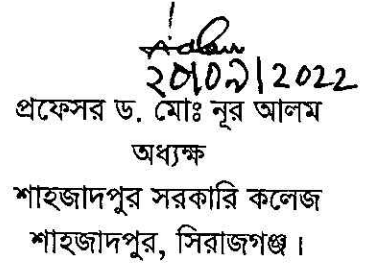 ২০/০৯/2022
প্রফেসর ড. মোঃ নূর আলম
অধ্যক্ষ
শাহজাদপুর সরকারি কলেজ
শাহজাদপুর, সিরাজগঞ্জ।